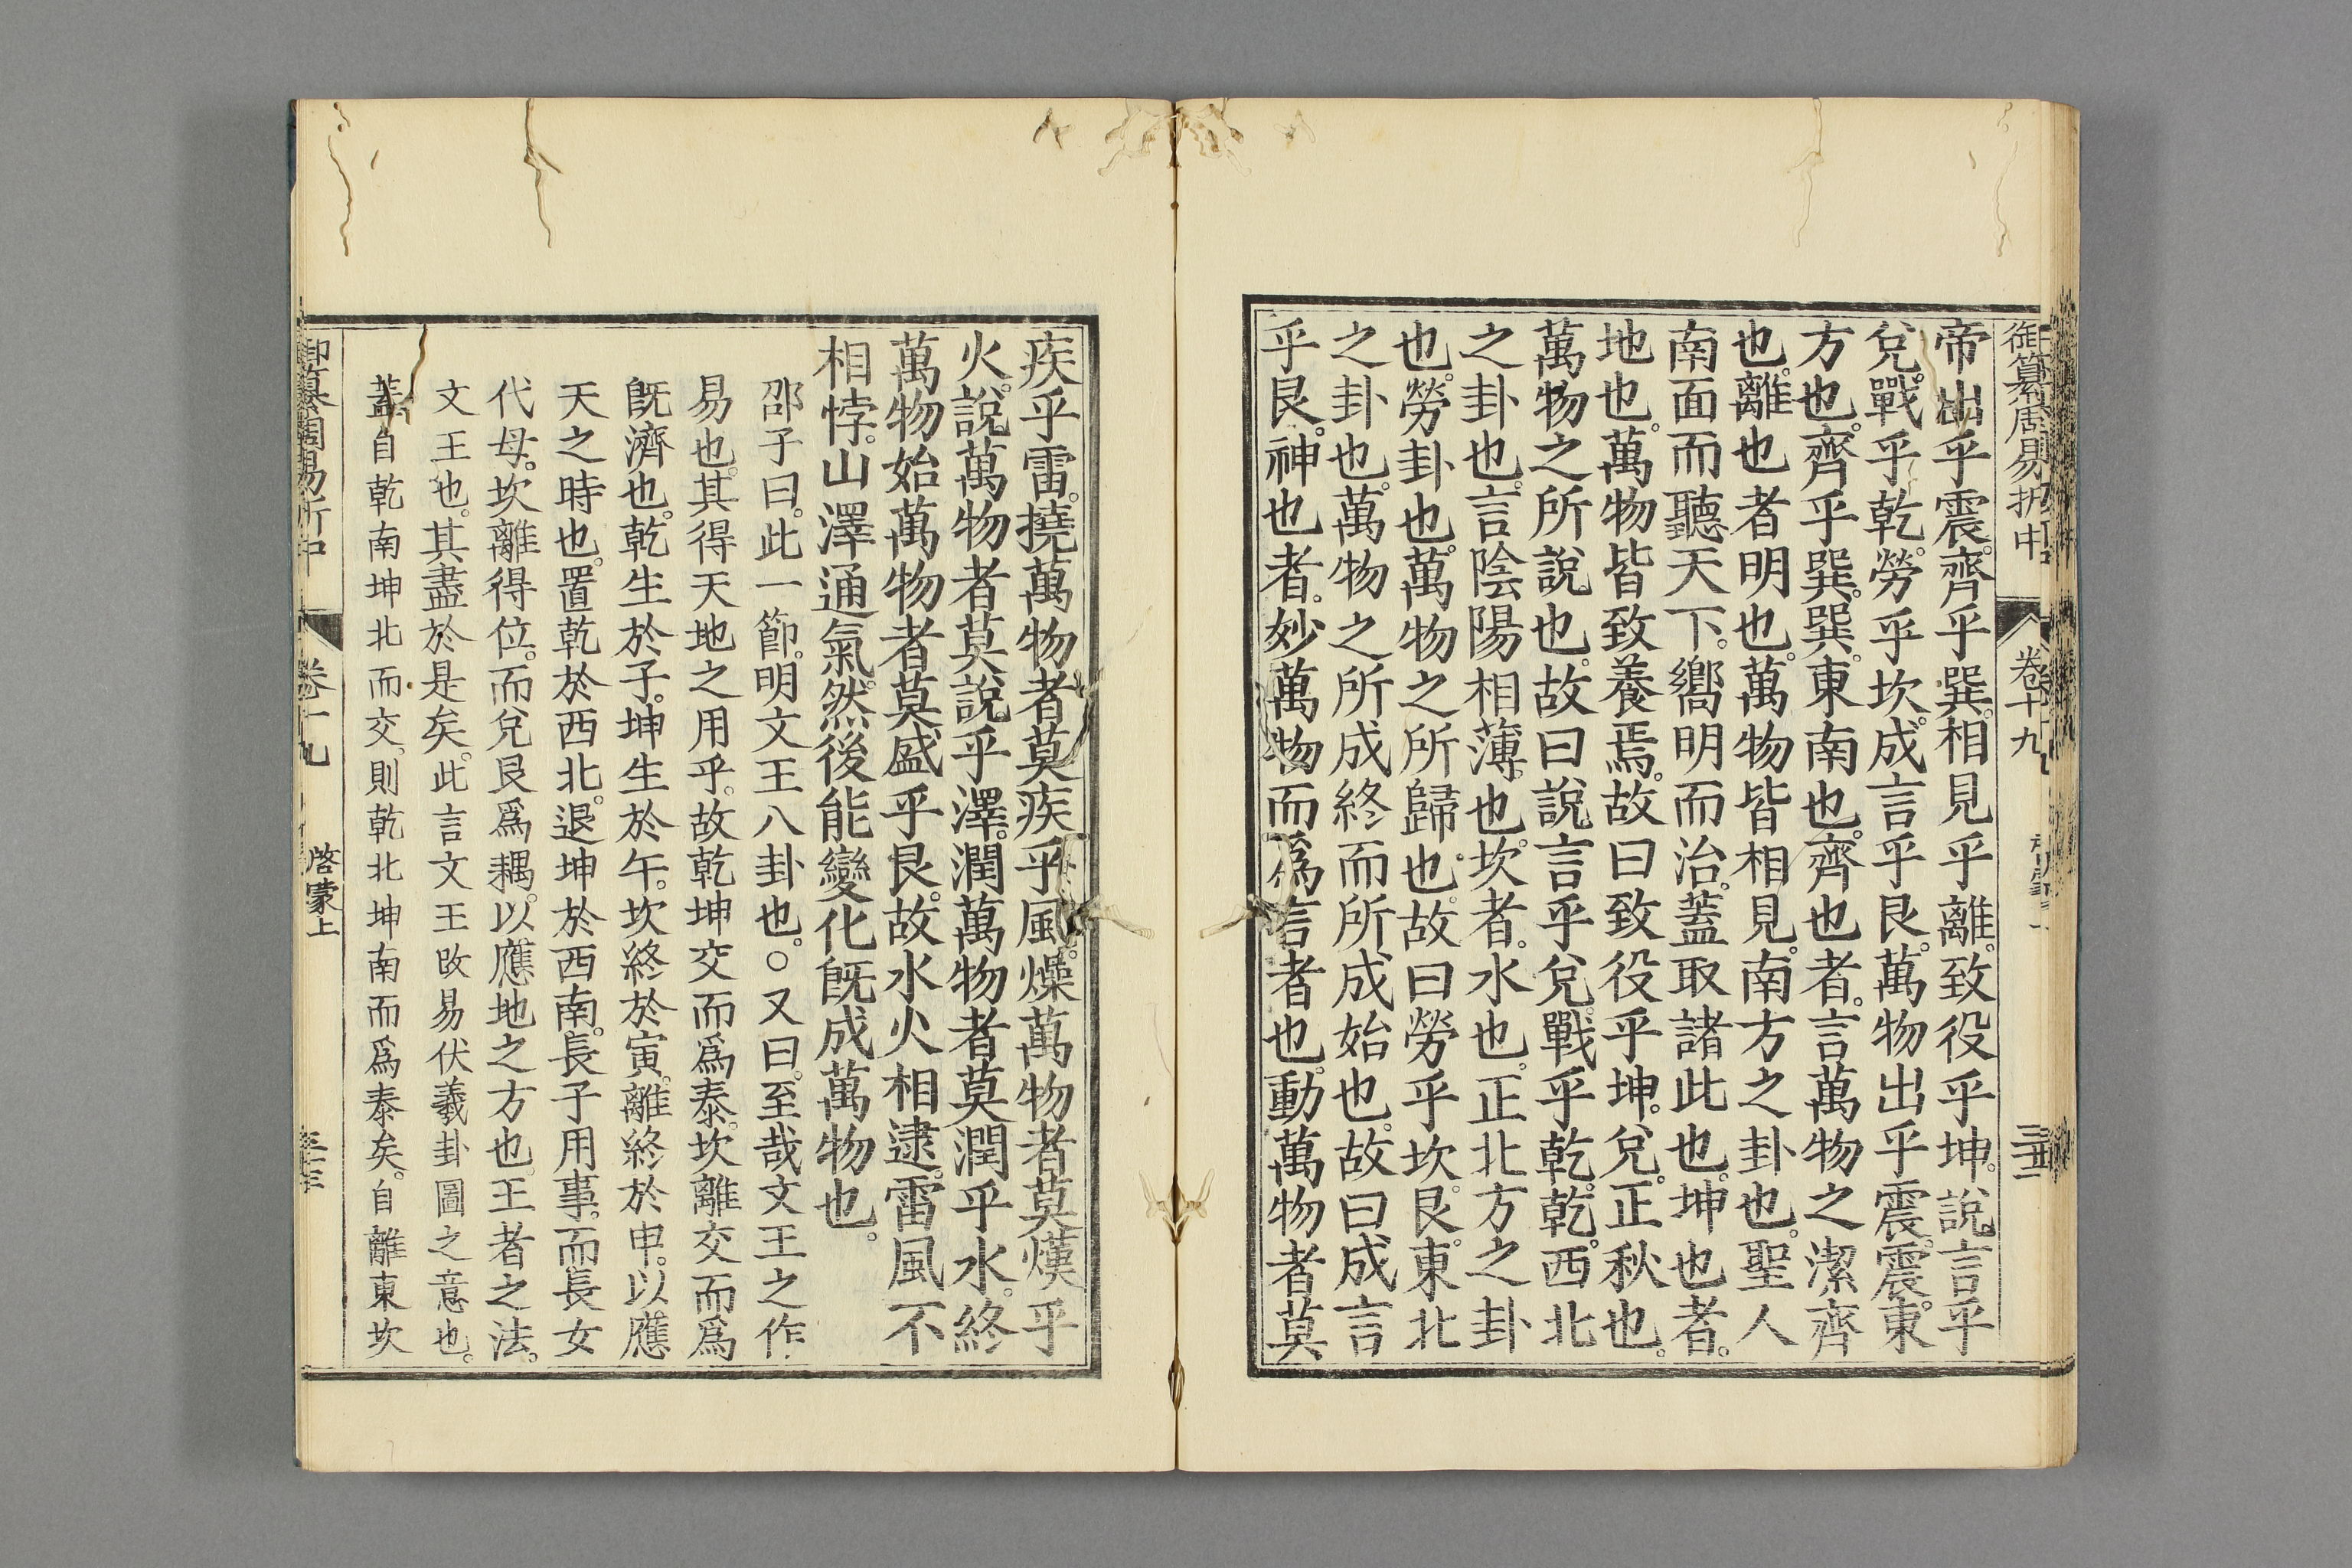 御纂周易折中
卷十九
帝出乎震。齊乎巽。相見乎離。致役乎坤。說言乎
兌。戰乎乾。勞乎坎。成言乎艮。萬物出乎震。震。東
方也。齊乎巽。巽。東南也。齊也者。言萬物之潔齊
也。離也者明也。萬物皆相見。南方之卦也。聖人
南面而聽天下。嚮明而治。蓋取諸此也。坤也者。
地也。萬物皆致養焉。故曰致役乎坤。兌。正秋也。
萬物之所說也。故曰說言乎兌。戰乎乾。乾。西北
之卦也。言陰陽相薄。也。坎者。水也。正北方之卦
也。勞卦也。萬物之所歸也。故曰勞乎坎。艮。東北
之卦也。萬物之所成終而所成始也。故曰成言
乎艮。神也者。妙萬物而爲言者也。動萬物者莫
疾乎雷。撓萬物者莫疾乎風。燥萬物者莫熯乎
火。說萬物者莫說乎澤。潤萬物者莫潤乎水。終
萬物始萬物者莫盛乎艮。故水火相逮。雷風不
相悖。山澤通氣。然後能變化旣成萬物也。
邵子曰。此一節。明文王八卦也。○又曰。至哉文王之作
易也。其得天地之用乎。故乾坤交而爲泰。坎離交而爲
旣濟也。乾生於子。坤生於午。坎終於寅。離終於申。以應
天之時也。置乾於西北。退坤於西南。長子用事。而長女
代母。坎離得位。而兌艮爲耦。以應地之方也。王者之法。
文王也。其盡於是矣。此言文王改易伏羲卦圖之意也。
蓋自乾南坤北而交。則乾北坤南而爲泰矣。自離東坎
御纂周易折中
卷十九
啓蒙上